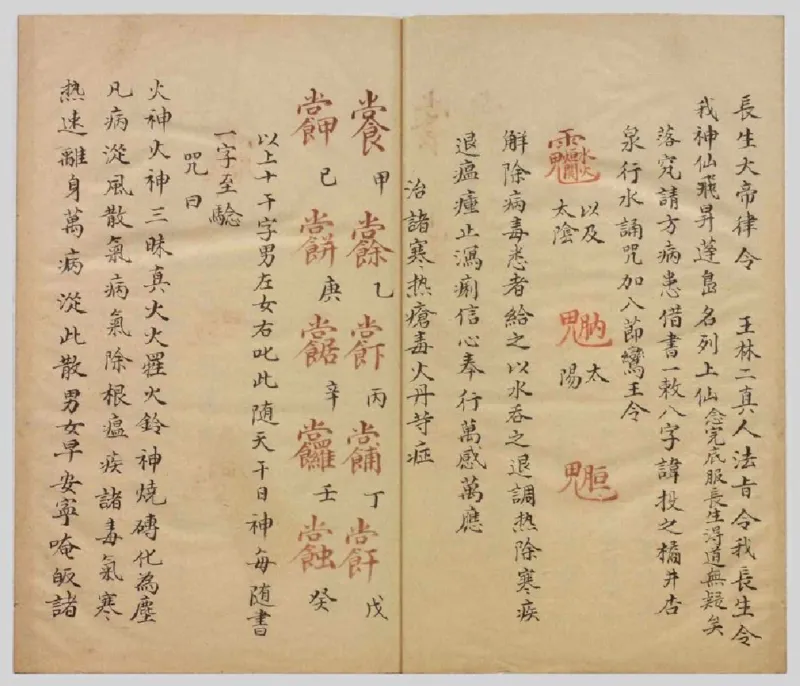 長生大帝律令　王林二真人法旨令我長生令
我神仙飛昇蓬島名列上仙愈完底服長生得道無疑矣
落完請方病患借書一敕八字諱投之橘井杏
泉行水誦咒加八節鸞王令
以及太陰　太陽
解除病毒患者給之以水吞之退調热除寒疾
退瘟瘴止瀉痢信心奉行萬感萬應
治諸寒热瘡毒火丹等症
甲　乙　丙　丁　戊
己　庚　辛　壬　癸
以上十干字男左女右叱此随天干日神每随書
一字至驗
咒曰
火神火神三昧真火火羅火鈴神燒磚化為塵
凡病從風散氣病氣除根瘟疾諸毒氣寒
热速離身萬病從此散男女早安寧唵皈諸